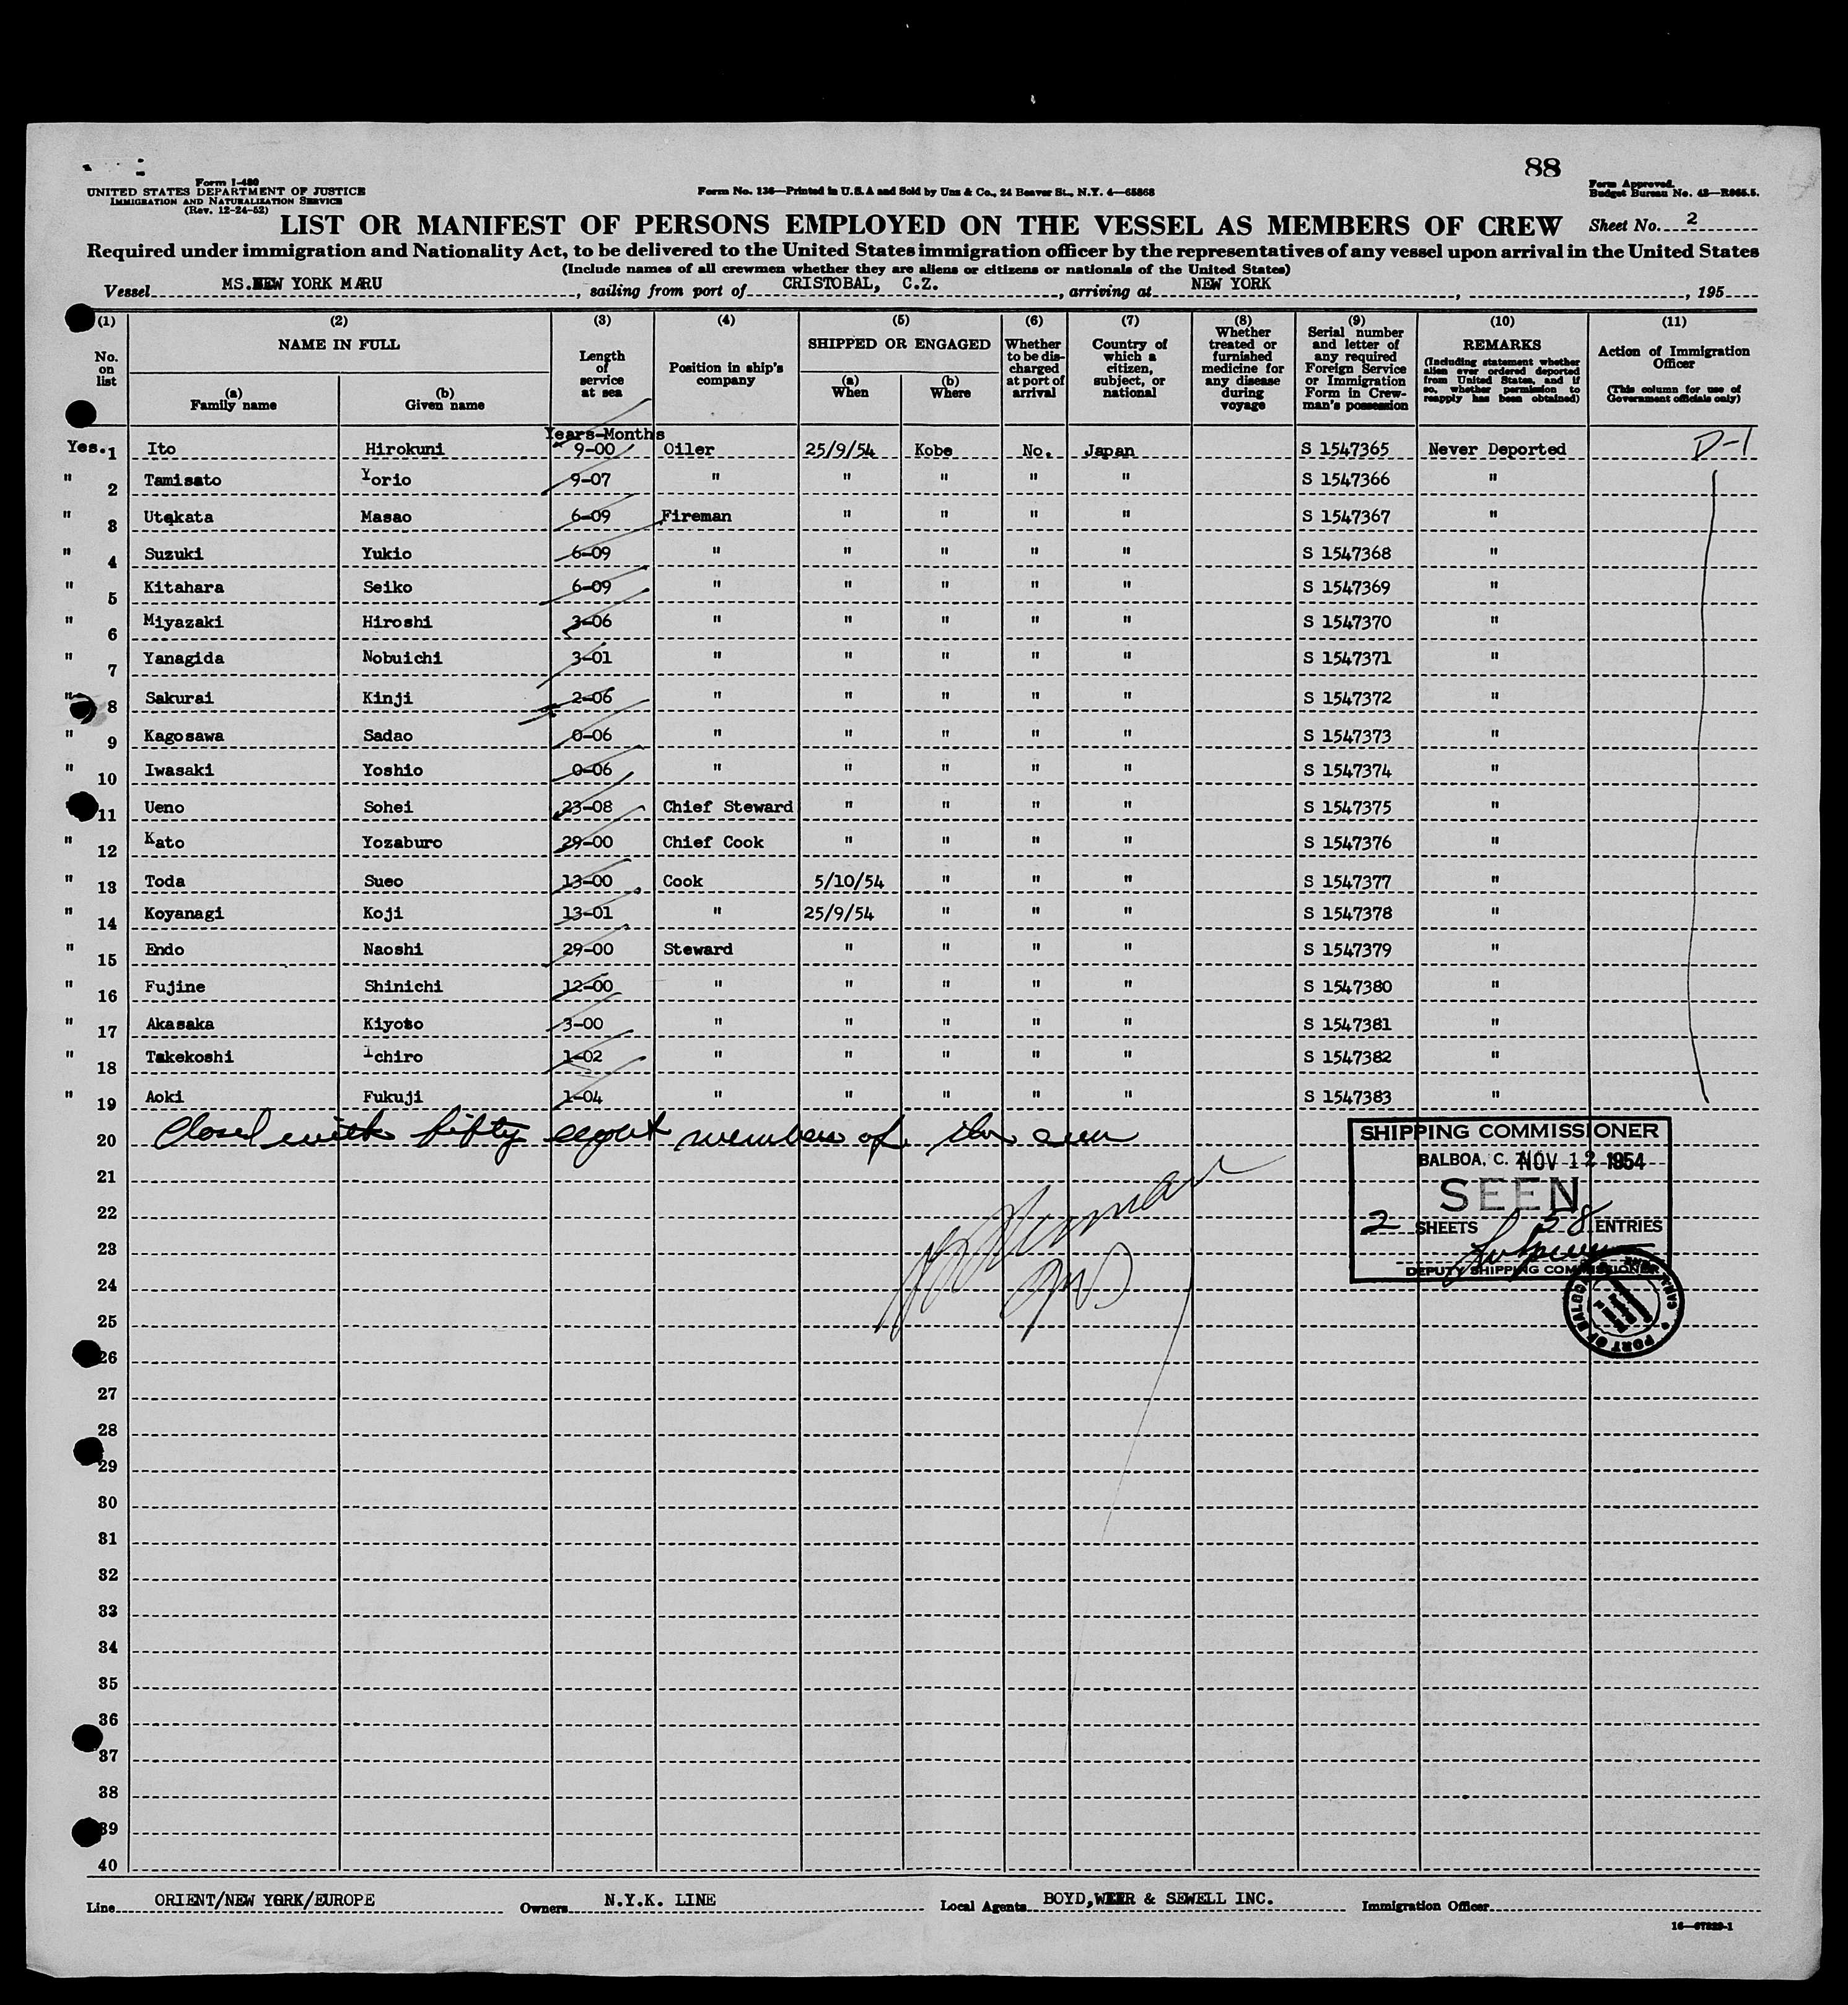 88
Form I-480
UNITED STATES DEPARTMENT OF JUSTICE
IMMIGRATION AND NATURALIZATION SERVICE
(Rev. 12-24-52)
Form No. 136—Printed in U.S.A and Sold by Unz & Co., 24 Beaver St., N.Y. 4—65868
Form Approved.
Budget Bureau No. 43—R065.5.
LIST OR MANIFEST OF PERSONS EMPLOYED ON THE VESSEL AS MEMBERS OF CREW
Sheet No. 2
Required under immigration and Nationality Act, to be delivered to the United States immigration officer by the representatives of any vessel upon arrival in the United States
(Include names of all crewmen whether they are aliens or citizens or nationals of the United States)
Vessel MS.NEW YORK MARU, sailing from port of CRISTOBAL, C.Z., arriving at NEW YORK, , 195
(1) No. on list
(2) NAME IN FULL
(a) Family name
(b) Given name
(3) Length of service at sea
(4) Position in ship's company
(5) SHIPPED OR ENGAGED
(a) When
(b) Where
(6) Whether to be discharged at port of arrival
(7) Country of which a citizen, subject, or national
(8) Whether treated or furnished medicine for any disease during voyage
(9) Serial number and letter of any required Foreign Service or Immigration Form in Crewman's possession
(10) REMARKS (Including statement whether alien ever ordered deported from United States, and if so, whether permission to reapply has been obtained)
(11) Action of Immigration Officer (This column for use of Government officials only)
Years-Months
Yes. 1 Ito Hirokuni 9-00 Oiler 25/9/54 Kobe No. Japan S 1547365 Never Deported D-1
" 2 Tamisato Yorio 9-07 " " " " " S 1547366 "
" 3 Utakata Masao 6-09 Fireman " " " " S 1547367 "
" 4 Suzuki Yukio 6-09 " " " " " S 1547368 "
" 5 Kitahara Seiko 6-09 " " " " " S 1547369 "
" 6 Miyazaki Hiroshi 3-06 " " " " " S 1547370 "
" 7 Yanagida Nobuichi 3-01 " " " " " S 1547371 "
" 8 Sakurai Kinji 2-06 " " " " " S 1547372 "
" 9 Kagosawa Sadao 0-06 " " " " " S 1547373 "
" 10 Iwasaki Yoshio 0-06 " " " " " S 1547374 "
11 Ueno Sohei 23-08 Chief Steward " " " " S 1547375 "
" 12 Kato Yozaburo 29-00 Chief Cook " " " " S 1547376 "
" 13 Toda Sueo 13-00 Cook 5/10/54 " " " S 1547377 "
" 14 Koyanagi Koji 13-01 " 25/9/54 " " " S 1547378 "
" 15 Endo Naoshi 29-00 Steward " " " " S 1547379 "
" 16 Fujine Shinichi 12-00 " " " " " S 1547380 "
" 17 Akasaka Kiyoto 3-00 " " " " " S 1547381 "
" 18 Takekoshi Ichiro 1-02 " " " " " S 1547382 "
" 19 Aoki Fukuji 1-04 " " " " " S 1547383 "
20 Closed with fifty eight members of the crew
SHIPPING COMMISSIONER
BALBOA, C. Z. NOV 12 1954
SEEN
2 SHEETS 58 ENTRIES
DEPUTY SHIPPING COMMISSIONER
PORT OF BALBOA
21
22
23
24
25
26
27
28
29
30
31
32
33
34
35
36
37
38
39
40
Line ORIENT/NEW YORK/EUROPE Owners N.Y.K. LINE Local Agents BOYD,WEIR & SEWELL INC. Immigration Officer
16—67829-1